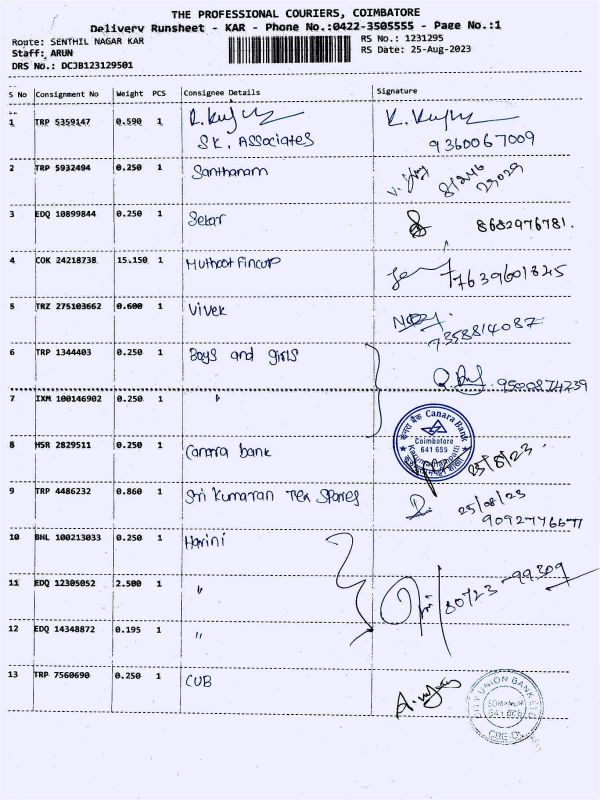 THE PROFESSIONAL COURIERS, COIMBATORE
Delivery Runsheet - KAR - Phone No.:0422-3505555 - Page No.:1
Route: SENTHIL NAGAR KAR
RS No.: 1231295
Staff: ARUN
RS Date: 25-Aug-2023
DRS No.: DCJB123129501
S No Consignment No Weight PCS Consignee Details Signature
1 TRP 5359147 0.590 1
SK. ASSOCIATES 9360067009
2 TRP 5932494 0.250 1 Santhanam
3 EDQ 10899844 0.250 1 Sekar 8682976781.
4 COK 24218738 15.150 1 Muthoot Fincorp 7639601845
5 TRZ 275103662 0.600 1 Vivek 7358814087
6 TRP 1344403 0.250 1 Boys and girls
9500874239
7 IXM 100146902 0.250 1 "
Canara Bank
Coimbatore
641 659
8 HSR 2829511 0.250 1 Canara bank
9 TRP 4486232 0.860 1 Sri Kumaran Tex Spares 25/08/23
9092776677
10 BHL 100213033 0.250 1 Harini
11 EDQ 12305052 2.500 1 " 80723-99309
12 EDQ 14348872 0.195 1 "
13 TRP 7560690 0.250 1 CUB
CITY UNION BANK LTD